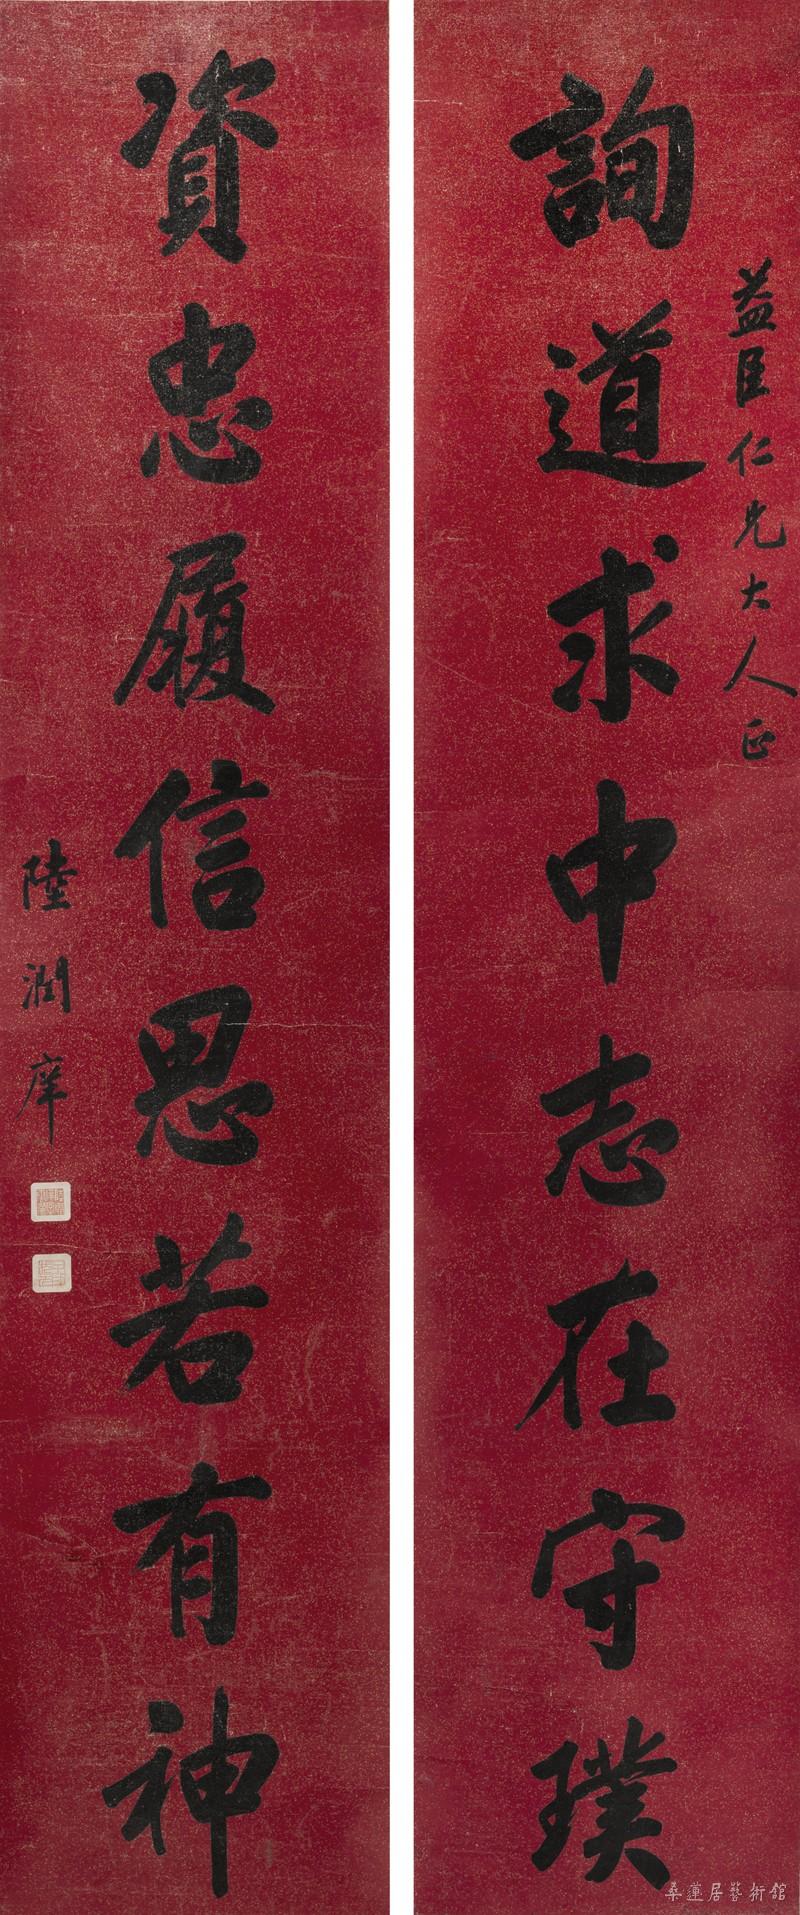 益臣仁兄大人正
詢道求中志在守璞
資忠履信思若有神
陸潤庠
桑蓮居藝術館